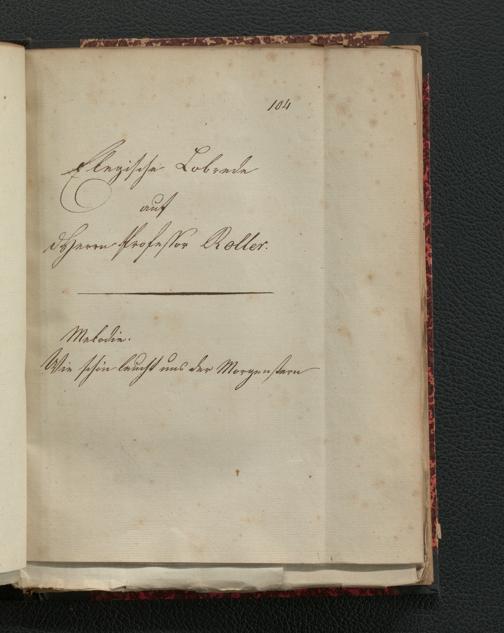 104
Elegische Lobrede
auf
Herrn Professor Roller.
Melodie.
Wie schön leucht uns der Morgenstern